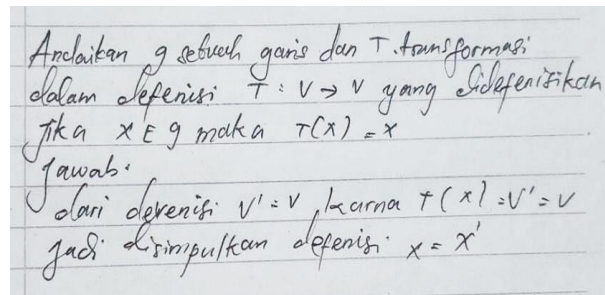 Andaikan g sebuah garis dan T. transformasi
dalam defenisi T : V → V yang didefenisikan
jika x ∈ g maka T(x) = x
Jawab.
dari devenisi V' = V, karna T(x) = V' = V
Jadi disimpulkan defenisi x = x'